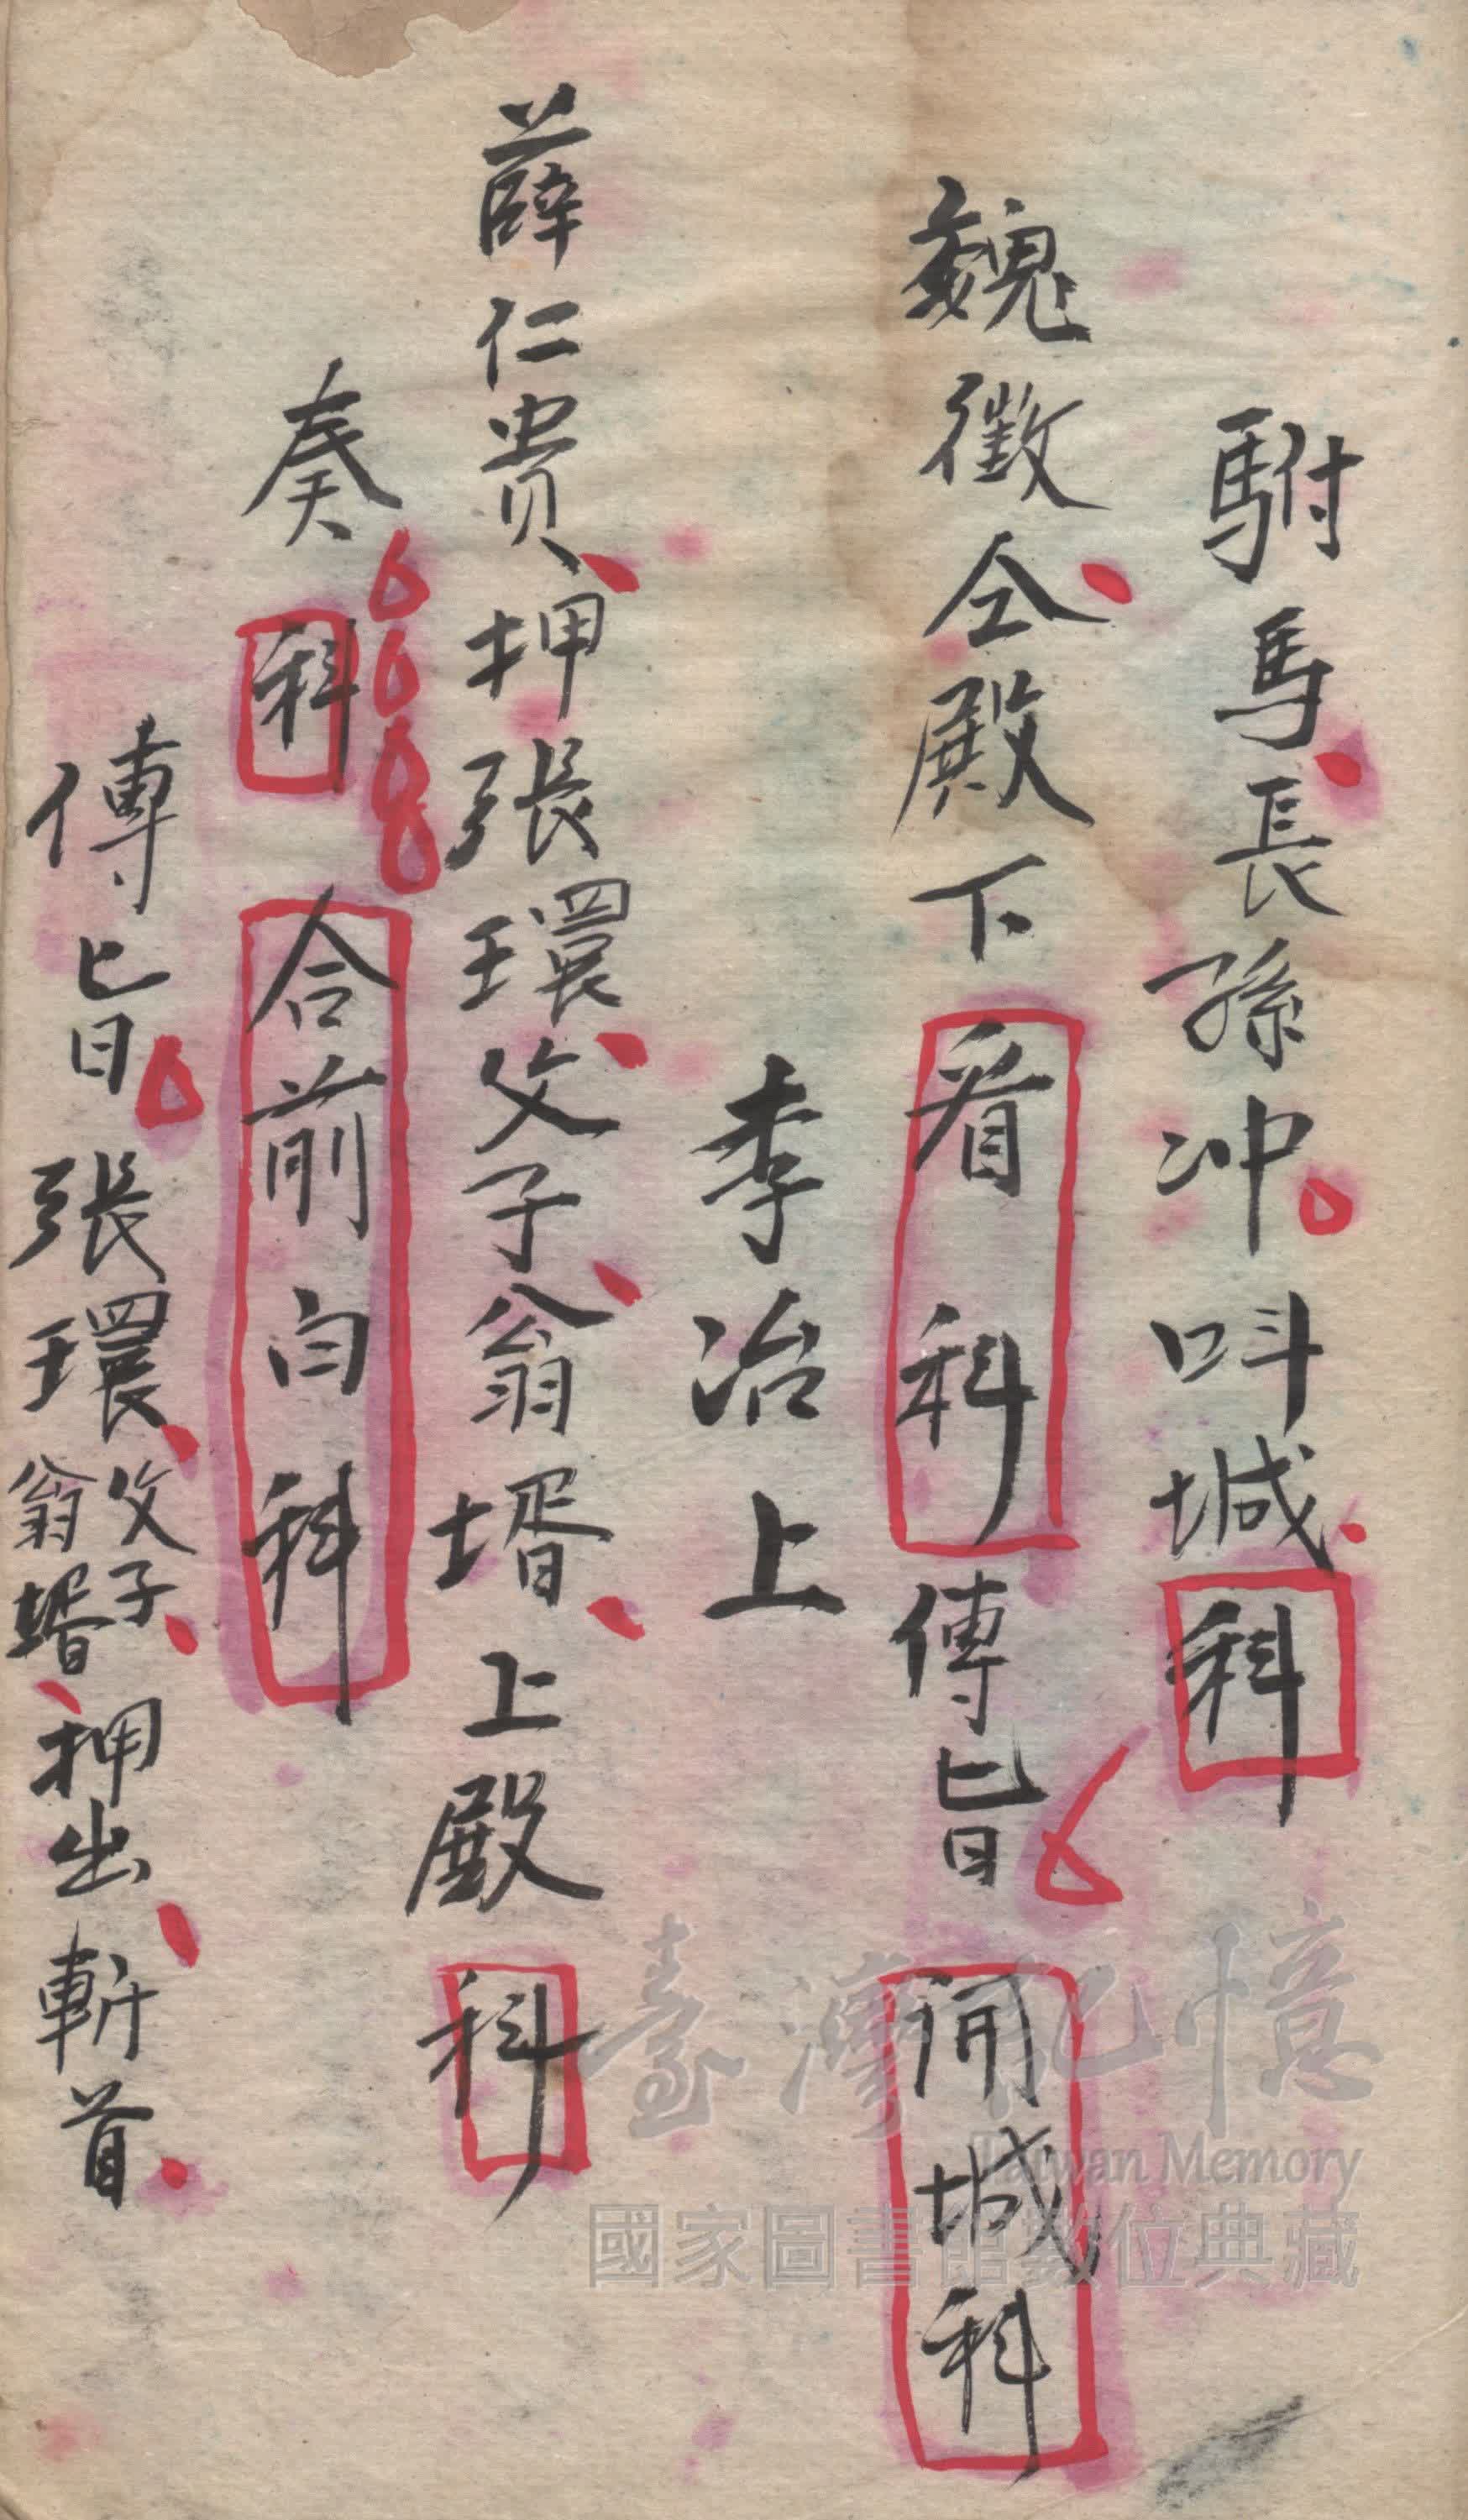 駙馬長孫冲叫城科
魏徵仝殿下看科傳旨開城科
李治上
薛仁貴押張環父子翁壻上殿科
奏科合前白科
傳旨張環父子翁壻押出斬首
臺灣記憶
Taiwan Memory
國家圖書館數位典藏